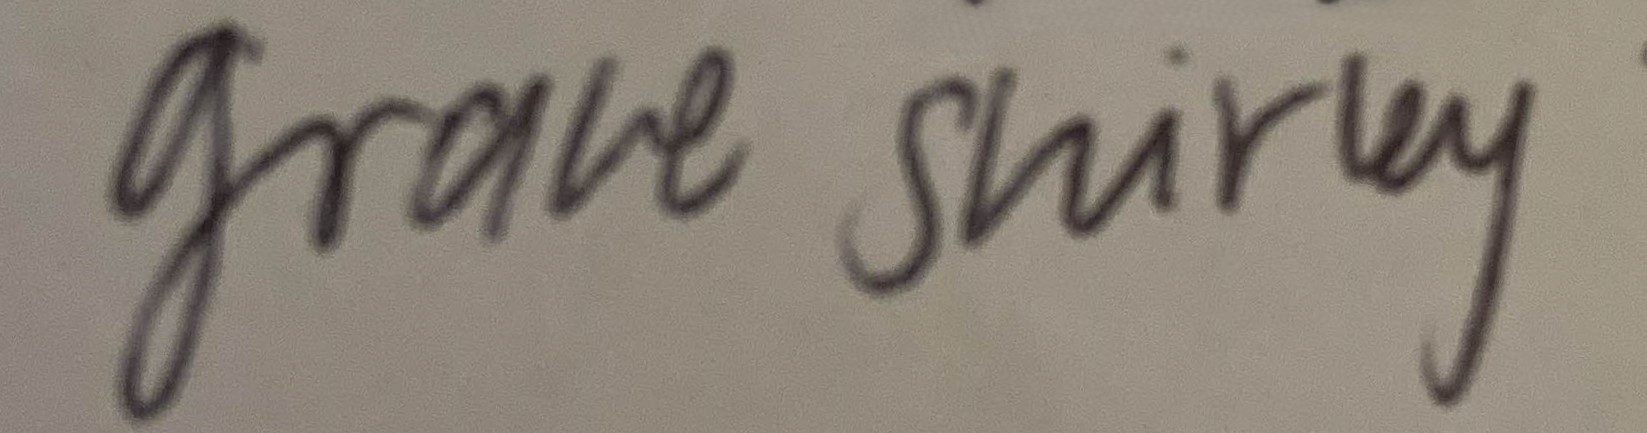 grace shirley